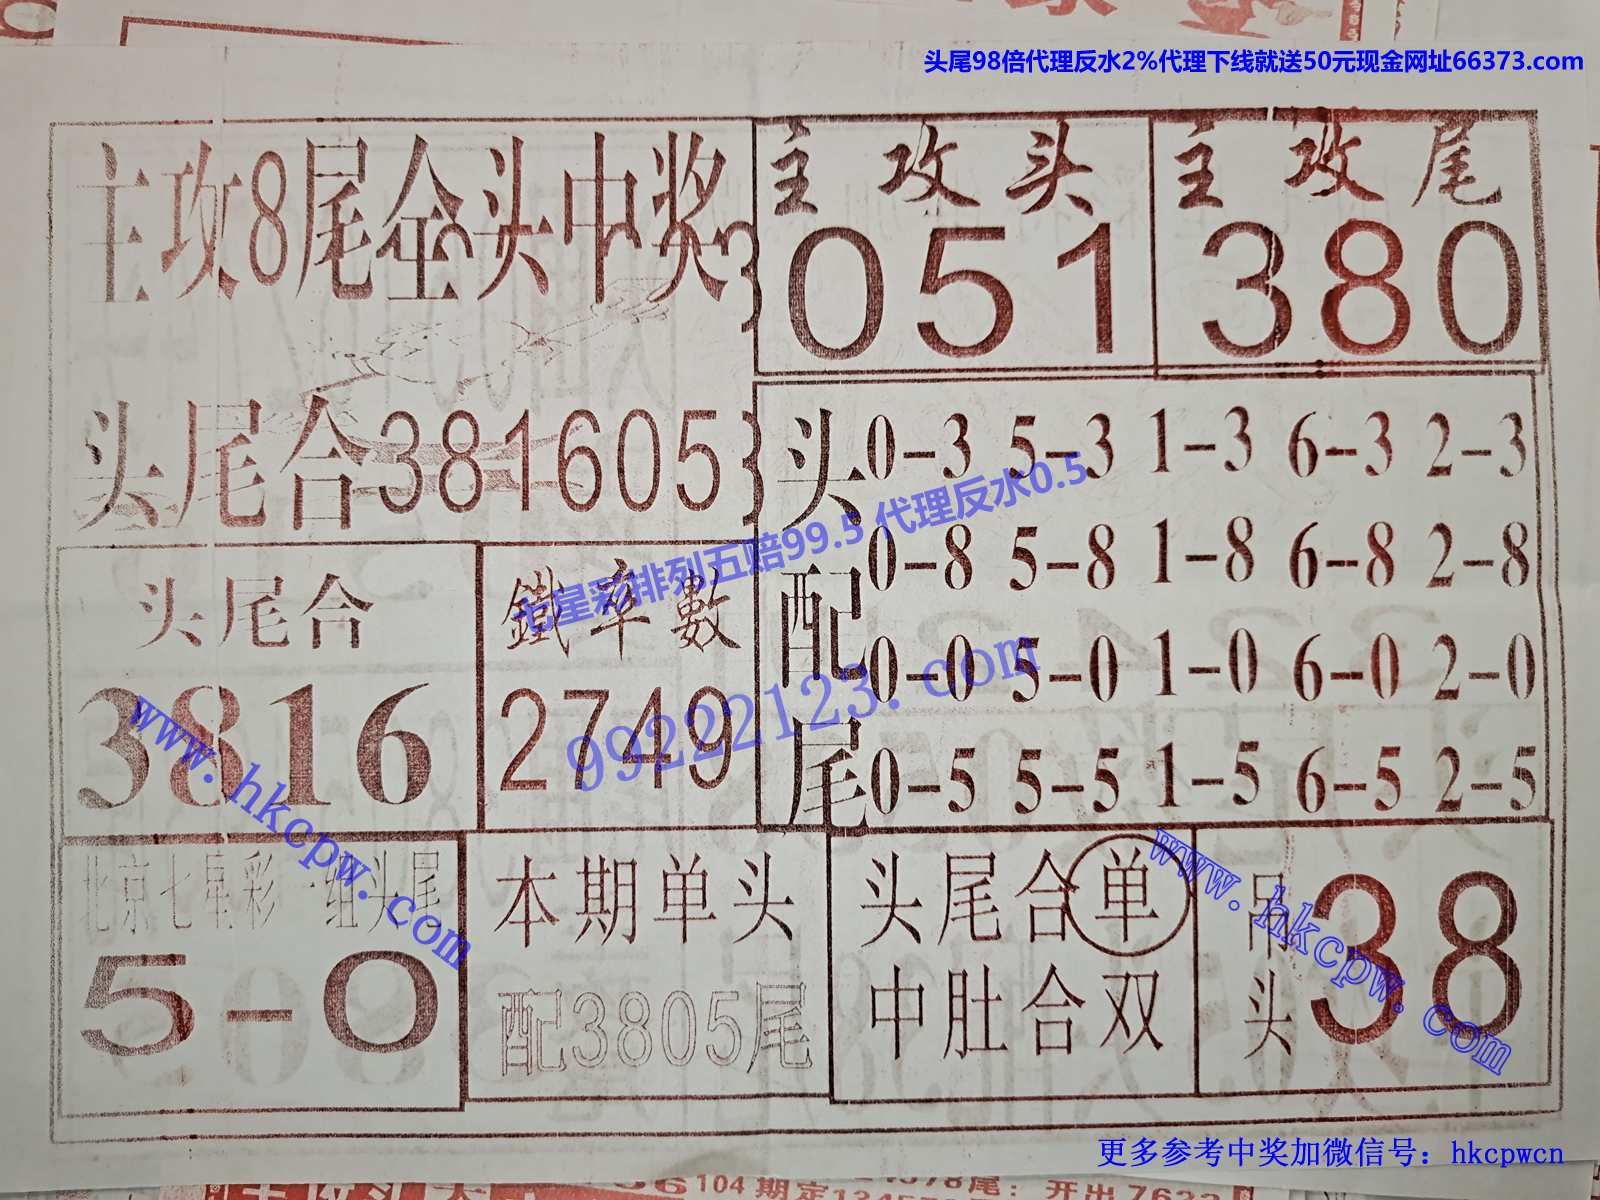 头尾98倍代理反水2%代理下线就送50元现金网址66373.com
主攻8尾全头中奖
头尾合381605
主攻头
051
主攻尾
380
头配尾
0-3 5-3 1-3 6-3 2-3
0-8 5-8 1-8 6-8 2-8
0-0 5-0 1-0 6-0 2-0
0-5 5-5 1-5 6-5 2-5
七星彩排列五赔99.5 代理反水0.5
99222123.com
头尾合
3816
鐵率數
2749
www.hkcpw.com
北京七星彩一组头尾
5-0
本期单头
配3805尾
头尾合单
中肚合双
吊头
38
www.hkcpw.com
更多参考中奖加微信号：hkcpwcn
104期定
尾：开出7633